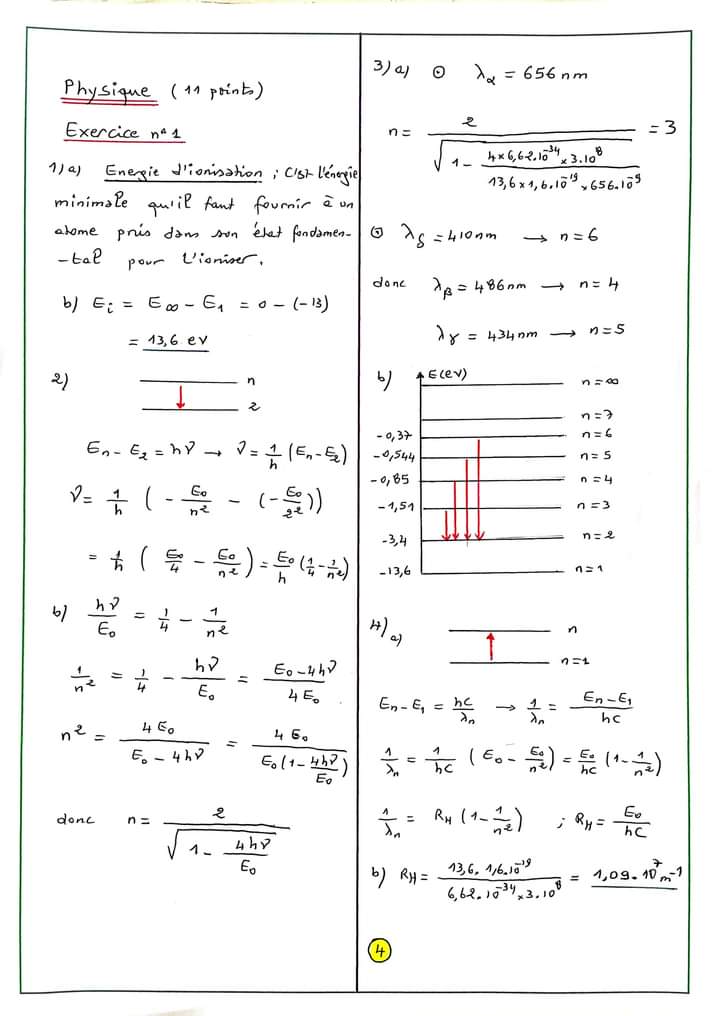 Physique (11 points)
Exercice n°1
1) a) Energie d'ionisation ; C'est l'énergie
minimale qu'il faut fournir à un
atome pris dans son état fondamen-
-tal pour l'ioniser.
b) Ei = E∞ - E1 = 0 - (-13)
= 13,6 ev
2)
n
2
En - E2 = hν → ν = 1/h (En - E2)
ν = 1/h ( - E0/n² - (- E0/2²))
= 1/h ( E0/4 - E0/n² ) = E0/h (1/4 - 1/n²)
b) hν/E0 = 1/4 - 1/n²
1/n² = 1/4 - hν/E0 = (E0 - 4hν)/(4E0)
n² = 4E0/(E0 - 4hν) = 4E0/(E0(1 - 4hν/E0))
donc n = 2/√(1 - 4hν/E0)
3) a) ⊙ λα = 656 nm
n = 2/√(1 - (4×6,62.10⁻³⁴×3.10⁸)/(13,6×1,6.10⁻¹⁹×656.10⁻⁹)) = 3
⊙ λδ = 410nm → n = 6
donc λβ = 486nm → n = 4
λγ = 434nm → n = 5
b) E(eV)
n = ∞
n = 7
-0,37 n = 6
-0,544 n = 5
-0,85 n = 4
-1,51 n = 3
-3,4 n = 2
-13,6 n = 1
4) a)
n
n = 1
En - E1 = hC/λn → 1/λn = (En - E1)/hC
1/λn = 1/hC (E0 - E0/n²) = E0/hC (1 - 1/n²)
1/λn = RH (1 - 1/n²) ; RH = E0/hC
b) RH = (13,6. 1,6.10⁻¹⁹)/(6,62.10⁻³⁴×3.10⁸) = 1,09.10⁷ m⁻¹
4